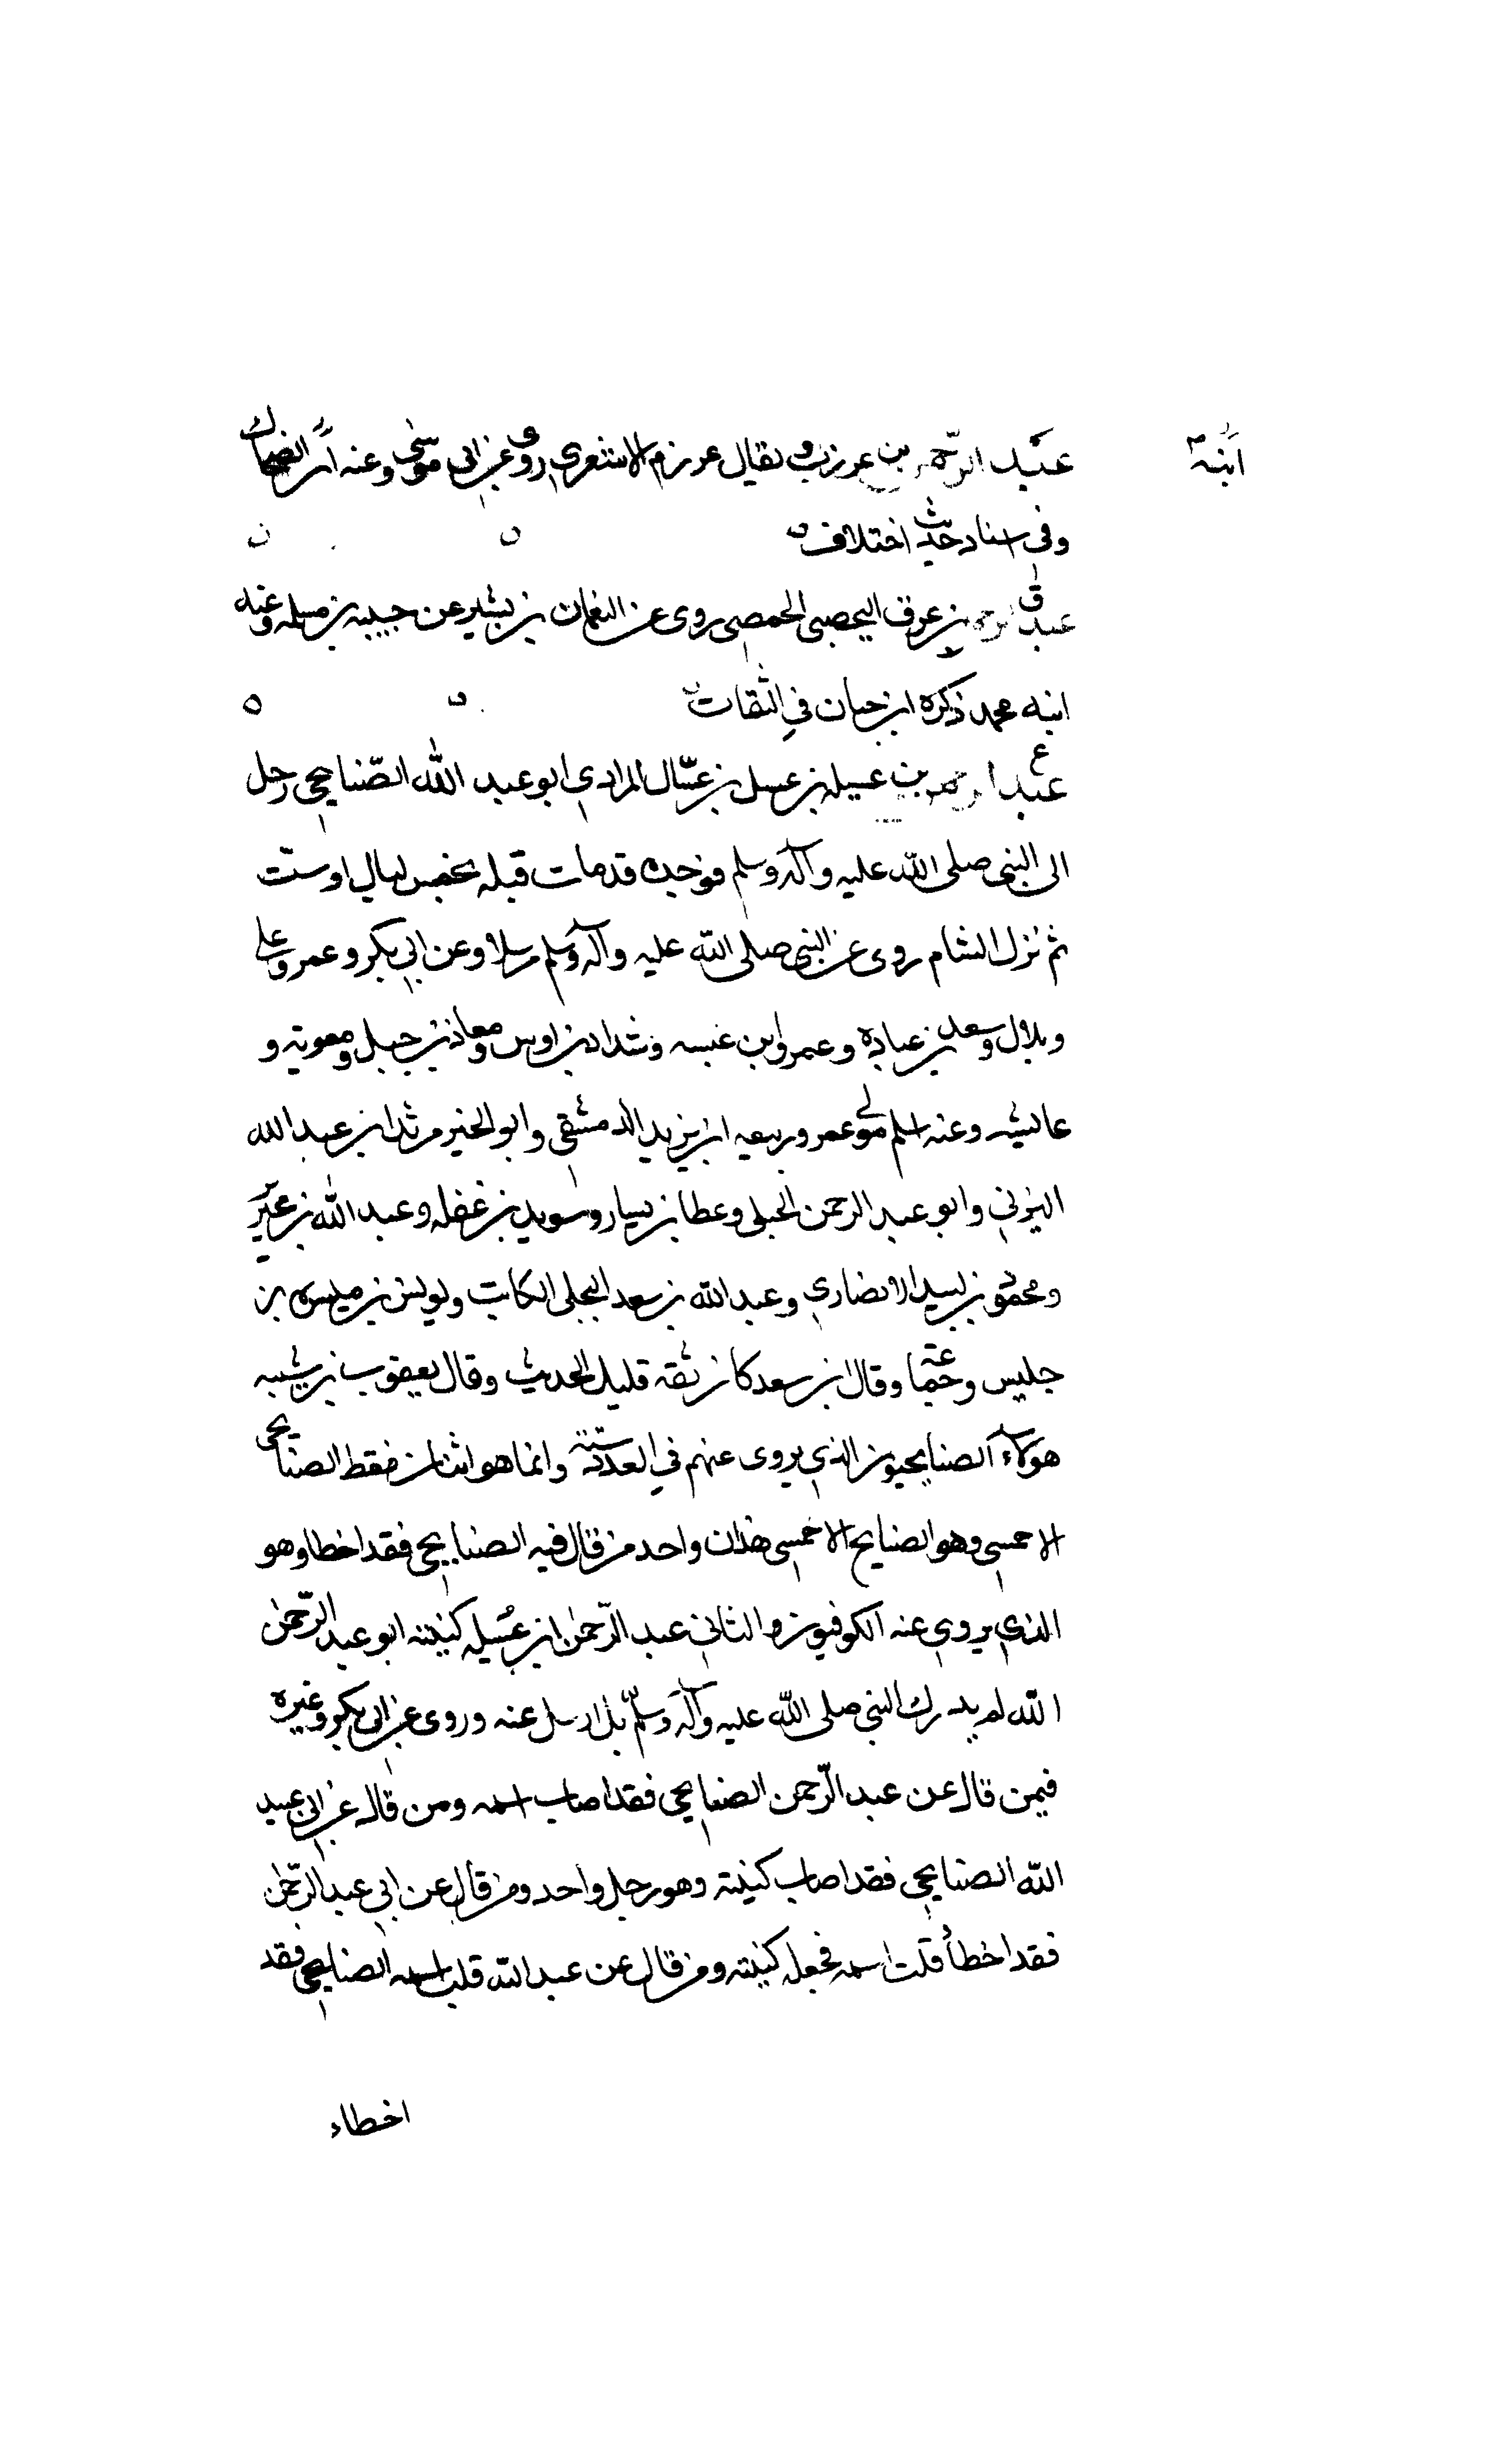 ابنه
عبد الرحمن بن عرزب ويقال عرزم الاشعري روى عن ابي موسى وعنه ابن الضحاك
وفي اسناد حديثه اختلاف
عبد الرحمن بن عرق اليحصبي الحمصي روى عن النعمان بن بشير عن حبيب بن مسلمه وعنه
ابنه محمد ذكره ابن حبان في الثقات
عبد الرحمن بن عسيله بن عسل بن عسّال المرادي ابو عبد الله الصّنابحي رحل
الى النبي صلى الله عليه وآله وسلم فوجده قد مات قبله بخمس ليال او ست
ثم نزل الشام روى عن النبي صلى الله عليه وآله وسلم مرسلا وعن ابي بكر وعمر وعلي
وبلال وسعد بن عباده وعمرو ابن عبسه وشداد بن اوس ومعاذ بن جبل ومعويه و
عايشه وعنه اسلم مولى عمر وربيعه ابن يزيد الدمشقي وابو الخير مرثد ابن عبد الله
اليزني وابو عبد الرحمن الحبلي وعطا بن يسار وسويد بن غفله وعبد الله بن محيريز
ومحمود بن لبيد الانصاري وعبد الله بن سعد البجلي الكاتب ويونس بن ميسره بن
حلبس وجماعة وقال ابن سعد كان ثقه قليل الحديث وقال يعقوب بن شيبه
هولاء الصنابحيون الذي يروى عنهم في العدد ستة وانما هو اثنان فقط الصنابحي
الاحمسي وهو الصنابح الاحمسي هذان واحد من قال فيه الصنابحي فقد اخطا وهو
الذي يروي عنه الكوفيون والثاني عبد الرّحمن ابن عُسَيله كنيته ابو عبد الرّحمن
الله لم يدرك النبي صلى الله عليه وآله وسلّم بل ارسل عنه وروى عن ابي بكر وغيره
فمن قال عن عبد الرّحمن الصنابحي فقد اصاب اسمه ومن قال عن ابي عبد
الله الصنابحي فقد اصاب كنيته وهو رجل واحد ومن قال عن ابي عبد الرّحمن
فقد اخطأ قلب اسمه فجعله كنيته ومن قال عن عبد الله قلب اسمه الصنابحي فقد
اخطاء